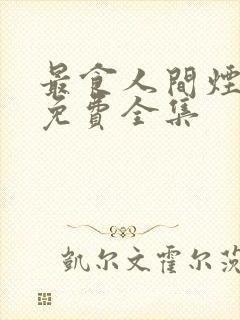 最食人間煙
免費全集
凱尔文霍尔茨